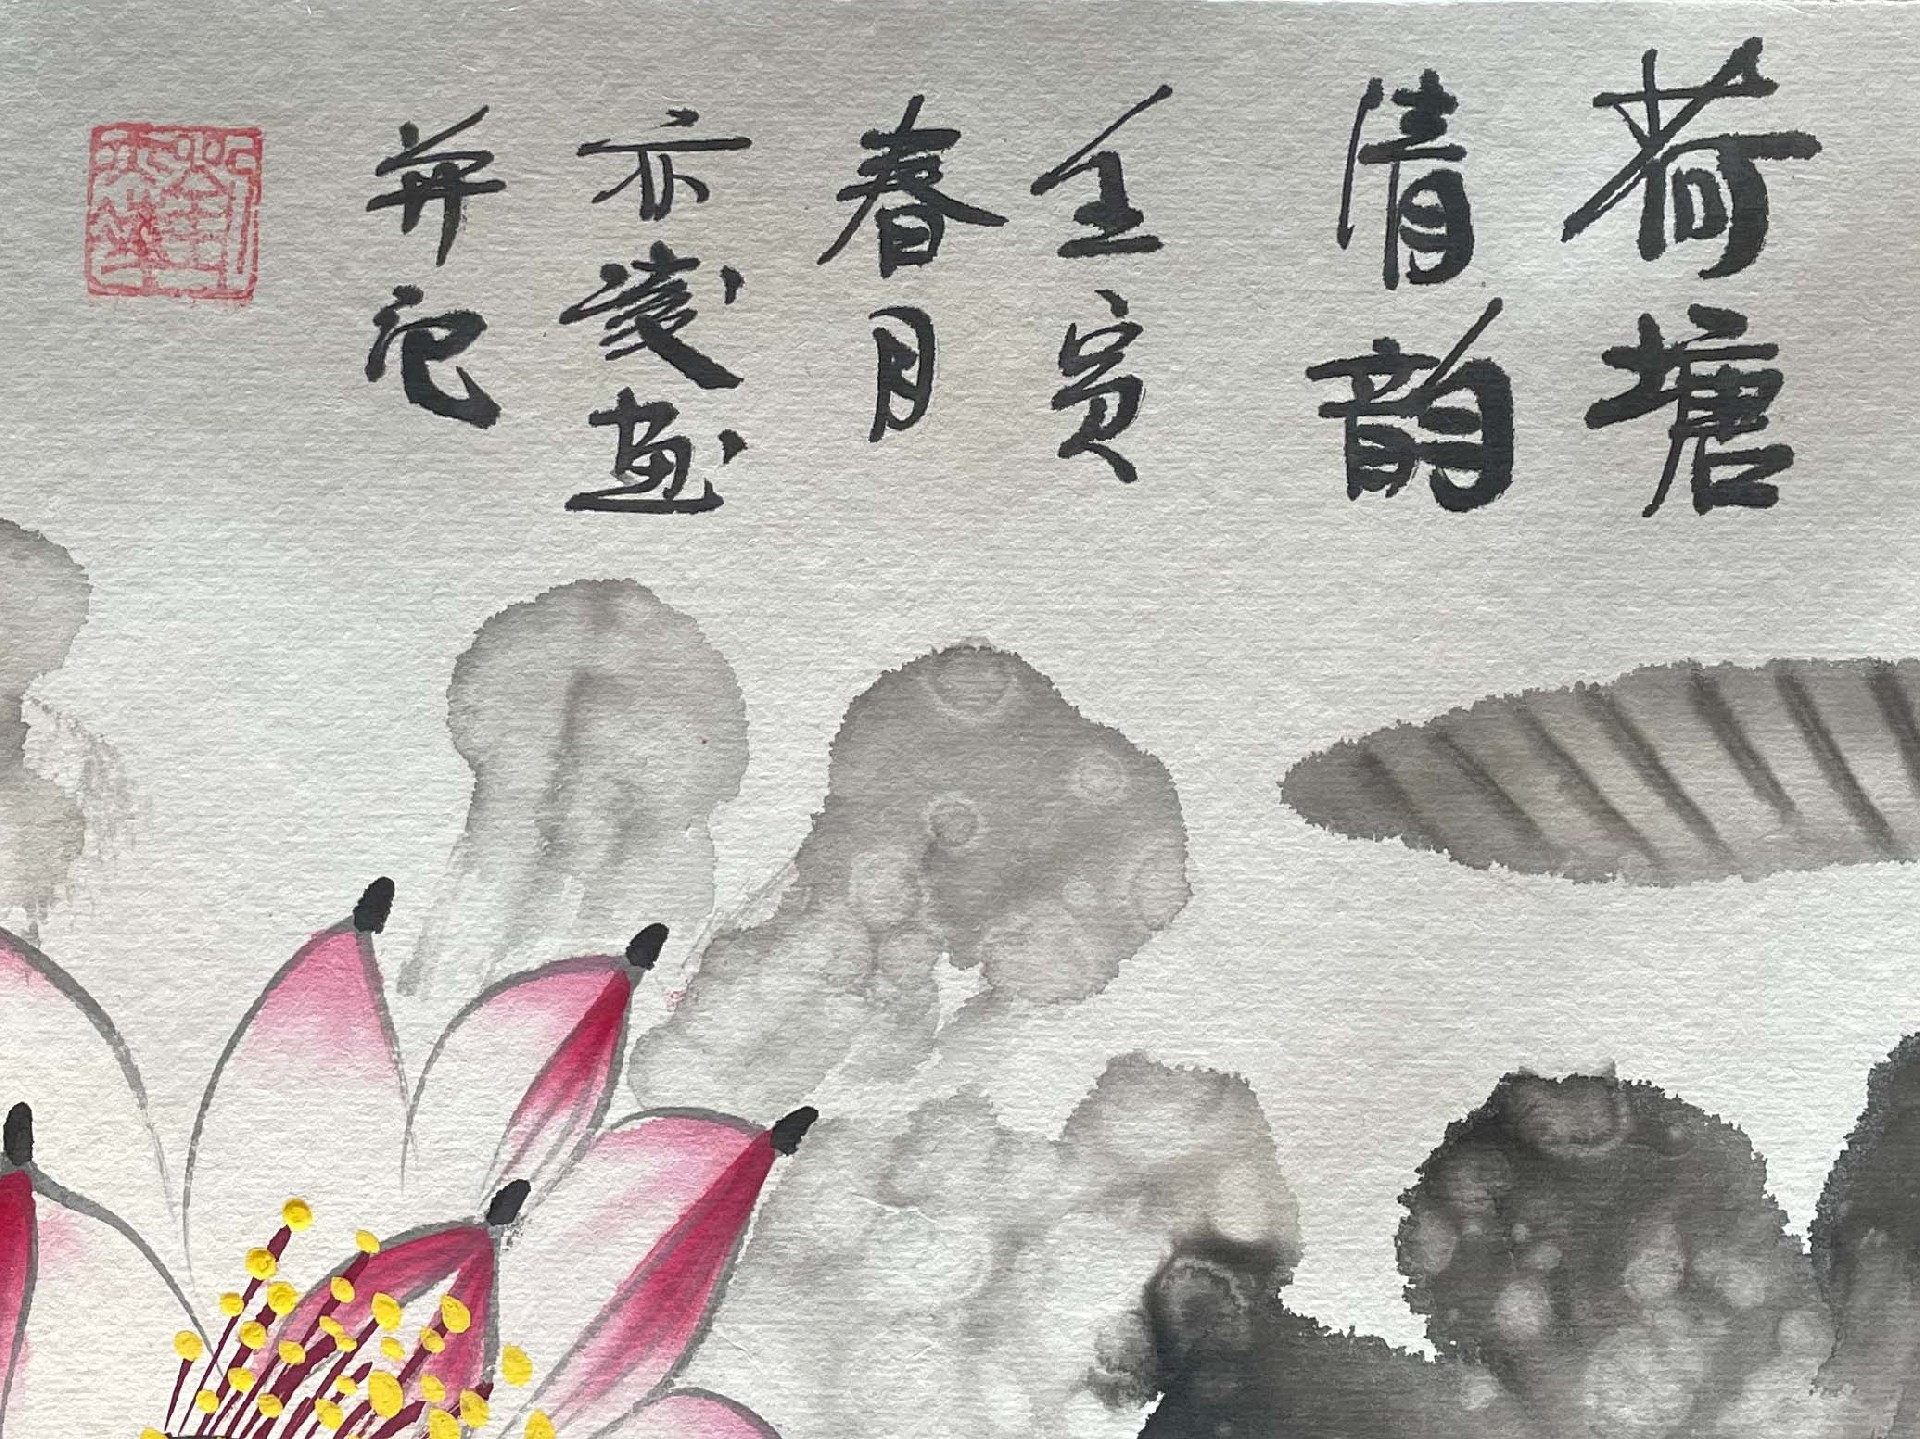 荷塘
清韵
壬寅
春月
亦箴画
并记